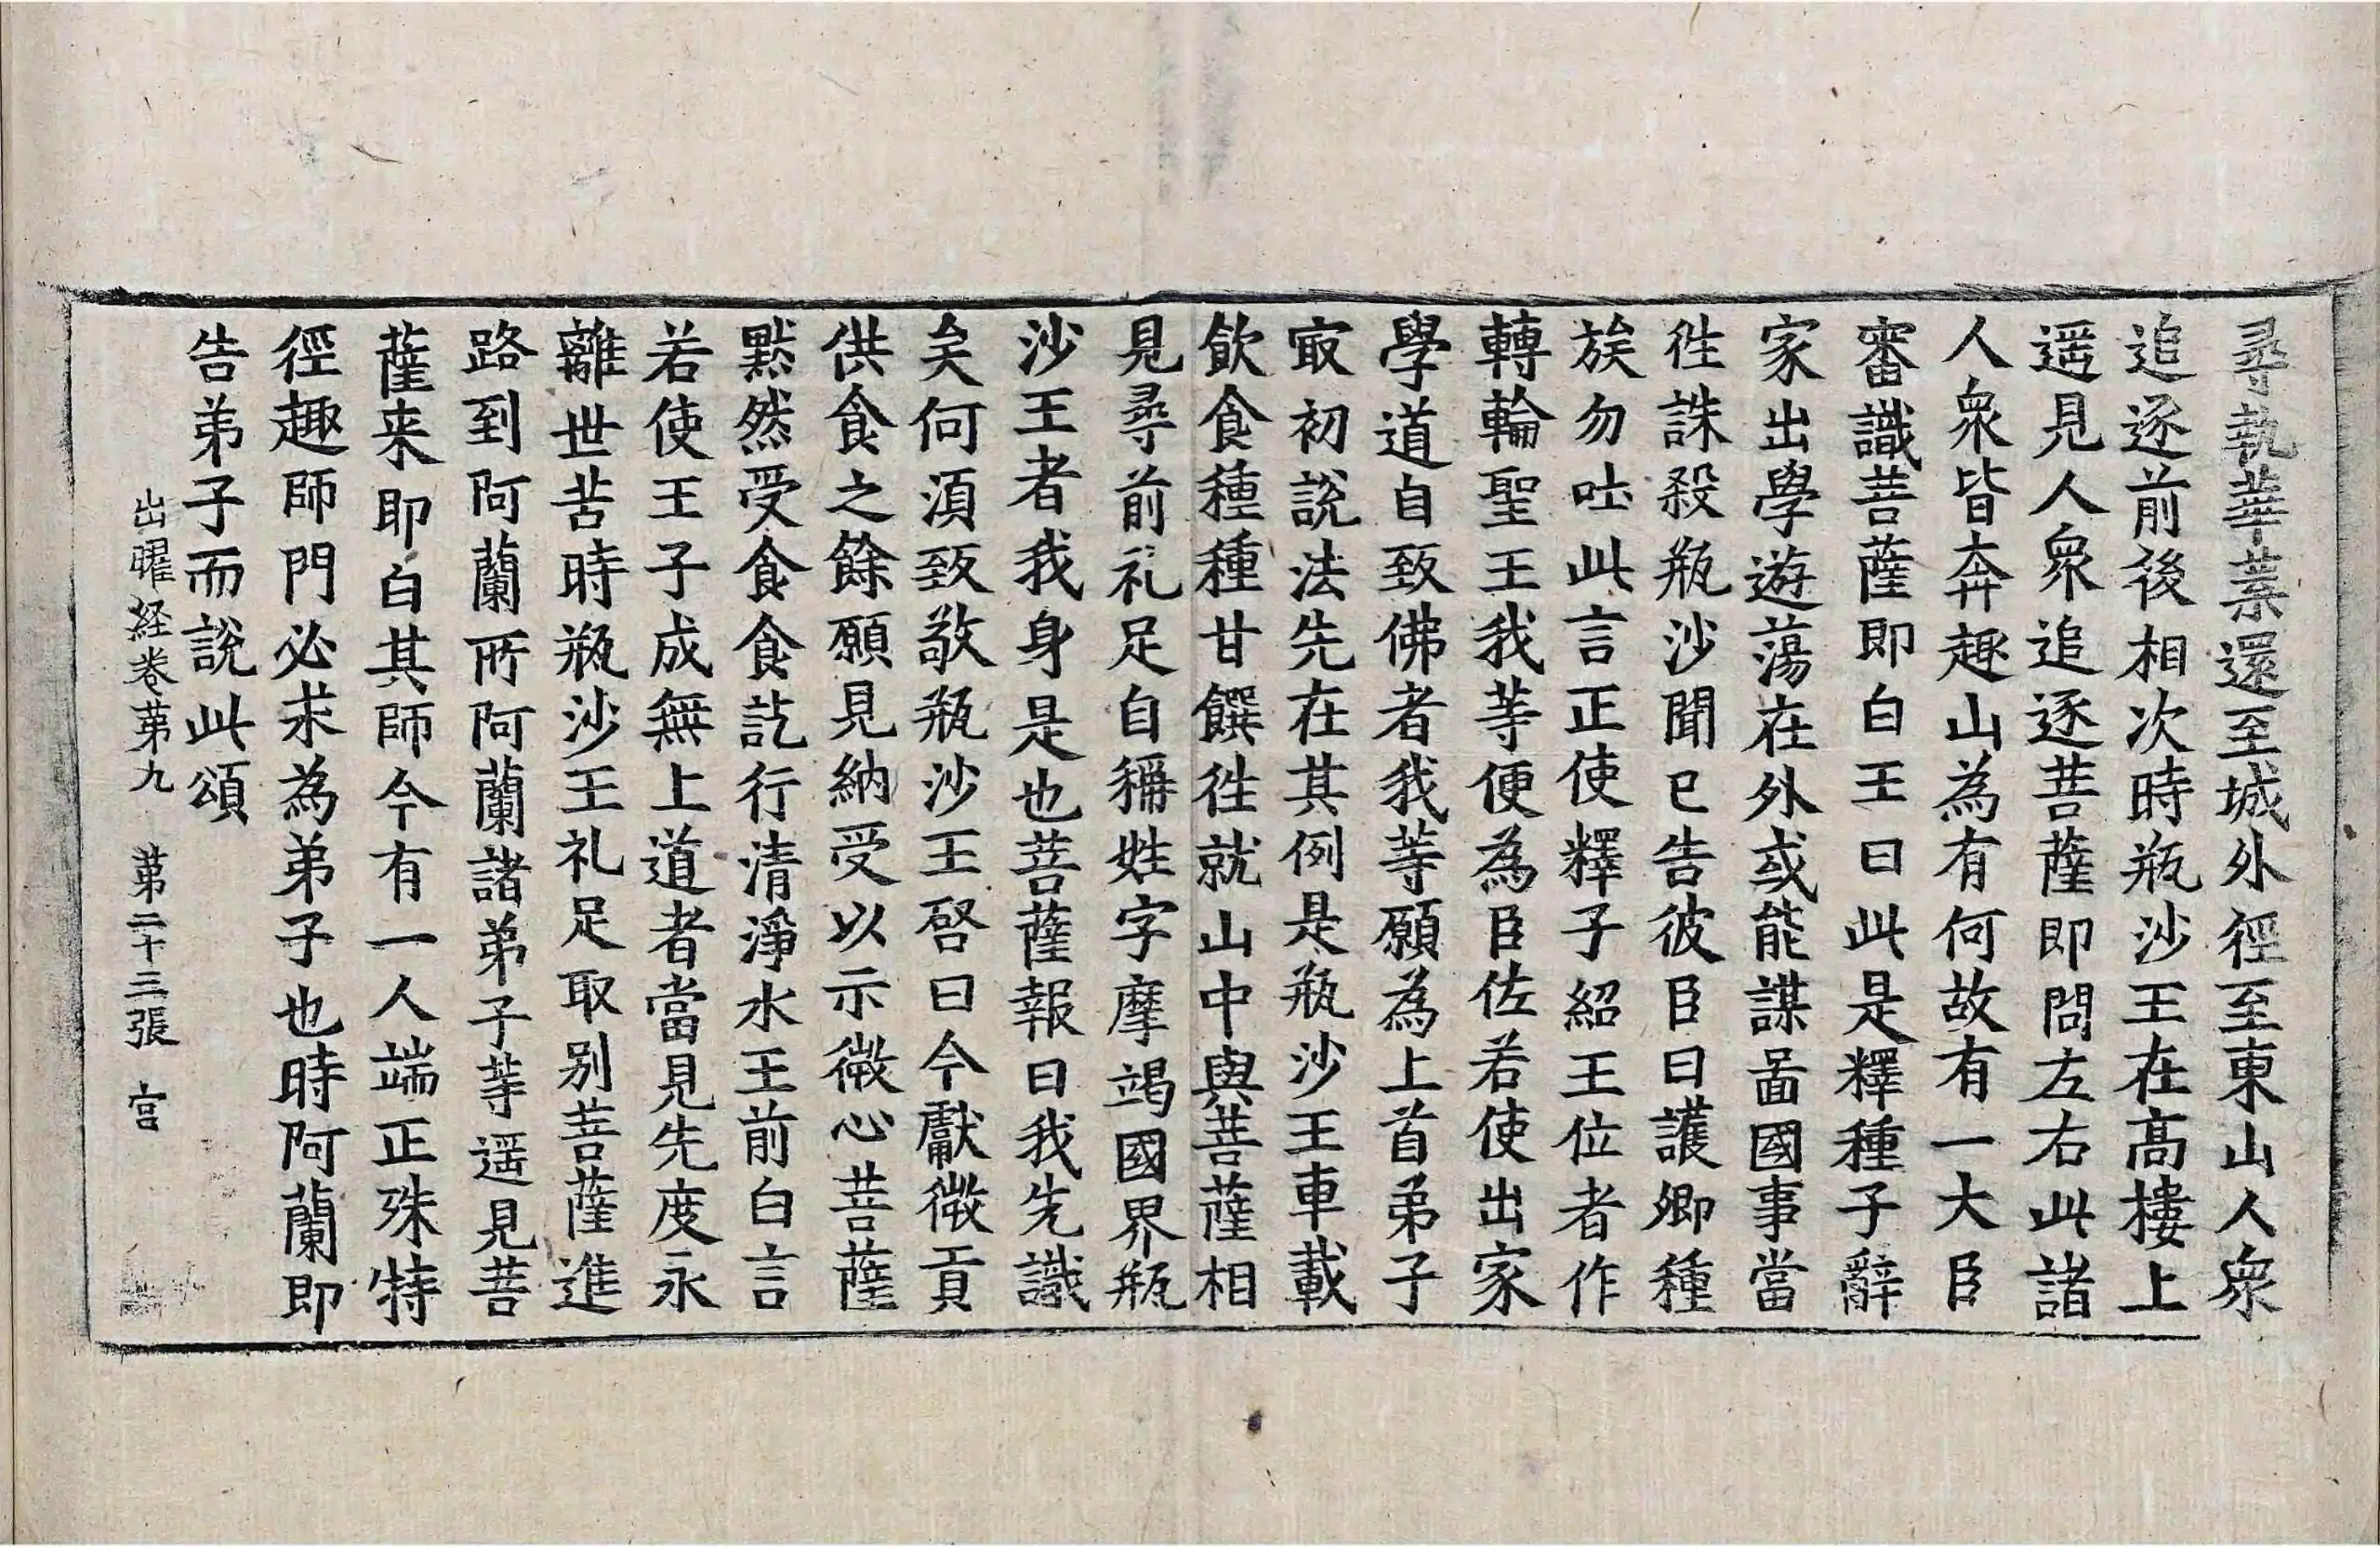 尋執華葉還至城外徑至東山人衆
追逐前後相次時瓶沙王在髙樓上
遥見人衆追逐菩薩即問左右此諸
人衆皆奔趣山為有何故有一大臣
審識菩薩即白王曰此是釋種子辭
家出學遊蕩在外或能謀啚國事當
徃誅殺瓶沙聞已告彼臣曰護卿種
族勿吐此言正使釋子紹王位者作
轉輪聖王我等便為臣佐若使出家
學道自致佛者我等願為上首弟子
㝡初說法先在其例是瓶沙王車載
飲食種種甘饌徃就山中與菩薩相
見尋前礼足自稱姓字摩竭國界瓶
沙王者我身是也菩薩報曰我先識
矣何湏致敬瓶沙王啓曰今獻微貢
供食之餘願見納受以示微心菩薩
黙然受食食訖行清淨水王前白言
若使王子成無上道者當見先度永
離世苦時瓶沙王礼足取别菩薩進
路到阿蘭所阿蘭諸弟子等遥見菩
薩来即白其師今有一人端正殊特
徑趣師門必求為弟子也時阿蘭即
告弟子而說此頌
出曜経卷苐九 苐二十三張 宫